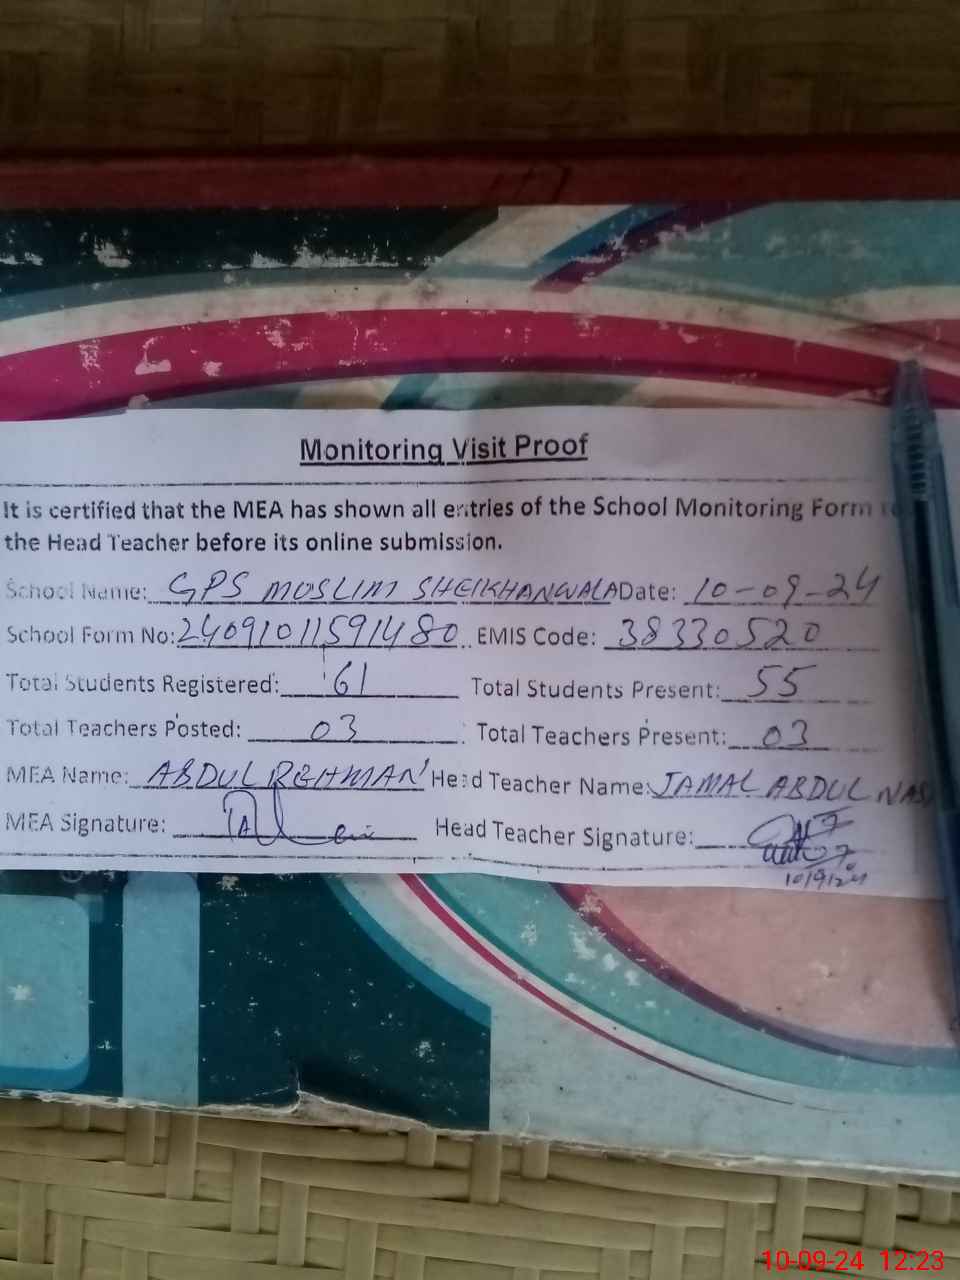 Monitoring Visit Proof
It is certified that the MEA has shown all entries of the School Monitoring Form to
the Head Teacher before its online submission.
School Name: GPS MOSLIM SHEIKHANWALA Date: 10-09-24
School Form No: 24091011591480 EMIS Code: 38330520
Total Students Registered: 61 Total Students Present: 55
Total Teachers Posted: 03 Total Teachers Present: 03
MEA Name: ABDUL REHMAN Head Teacher Name: JAMAL ABDUL NAS
MEA Signature: Head Teacher Signature:
10/9/24
10-09-24 12:23